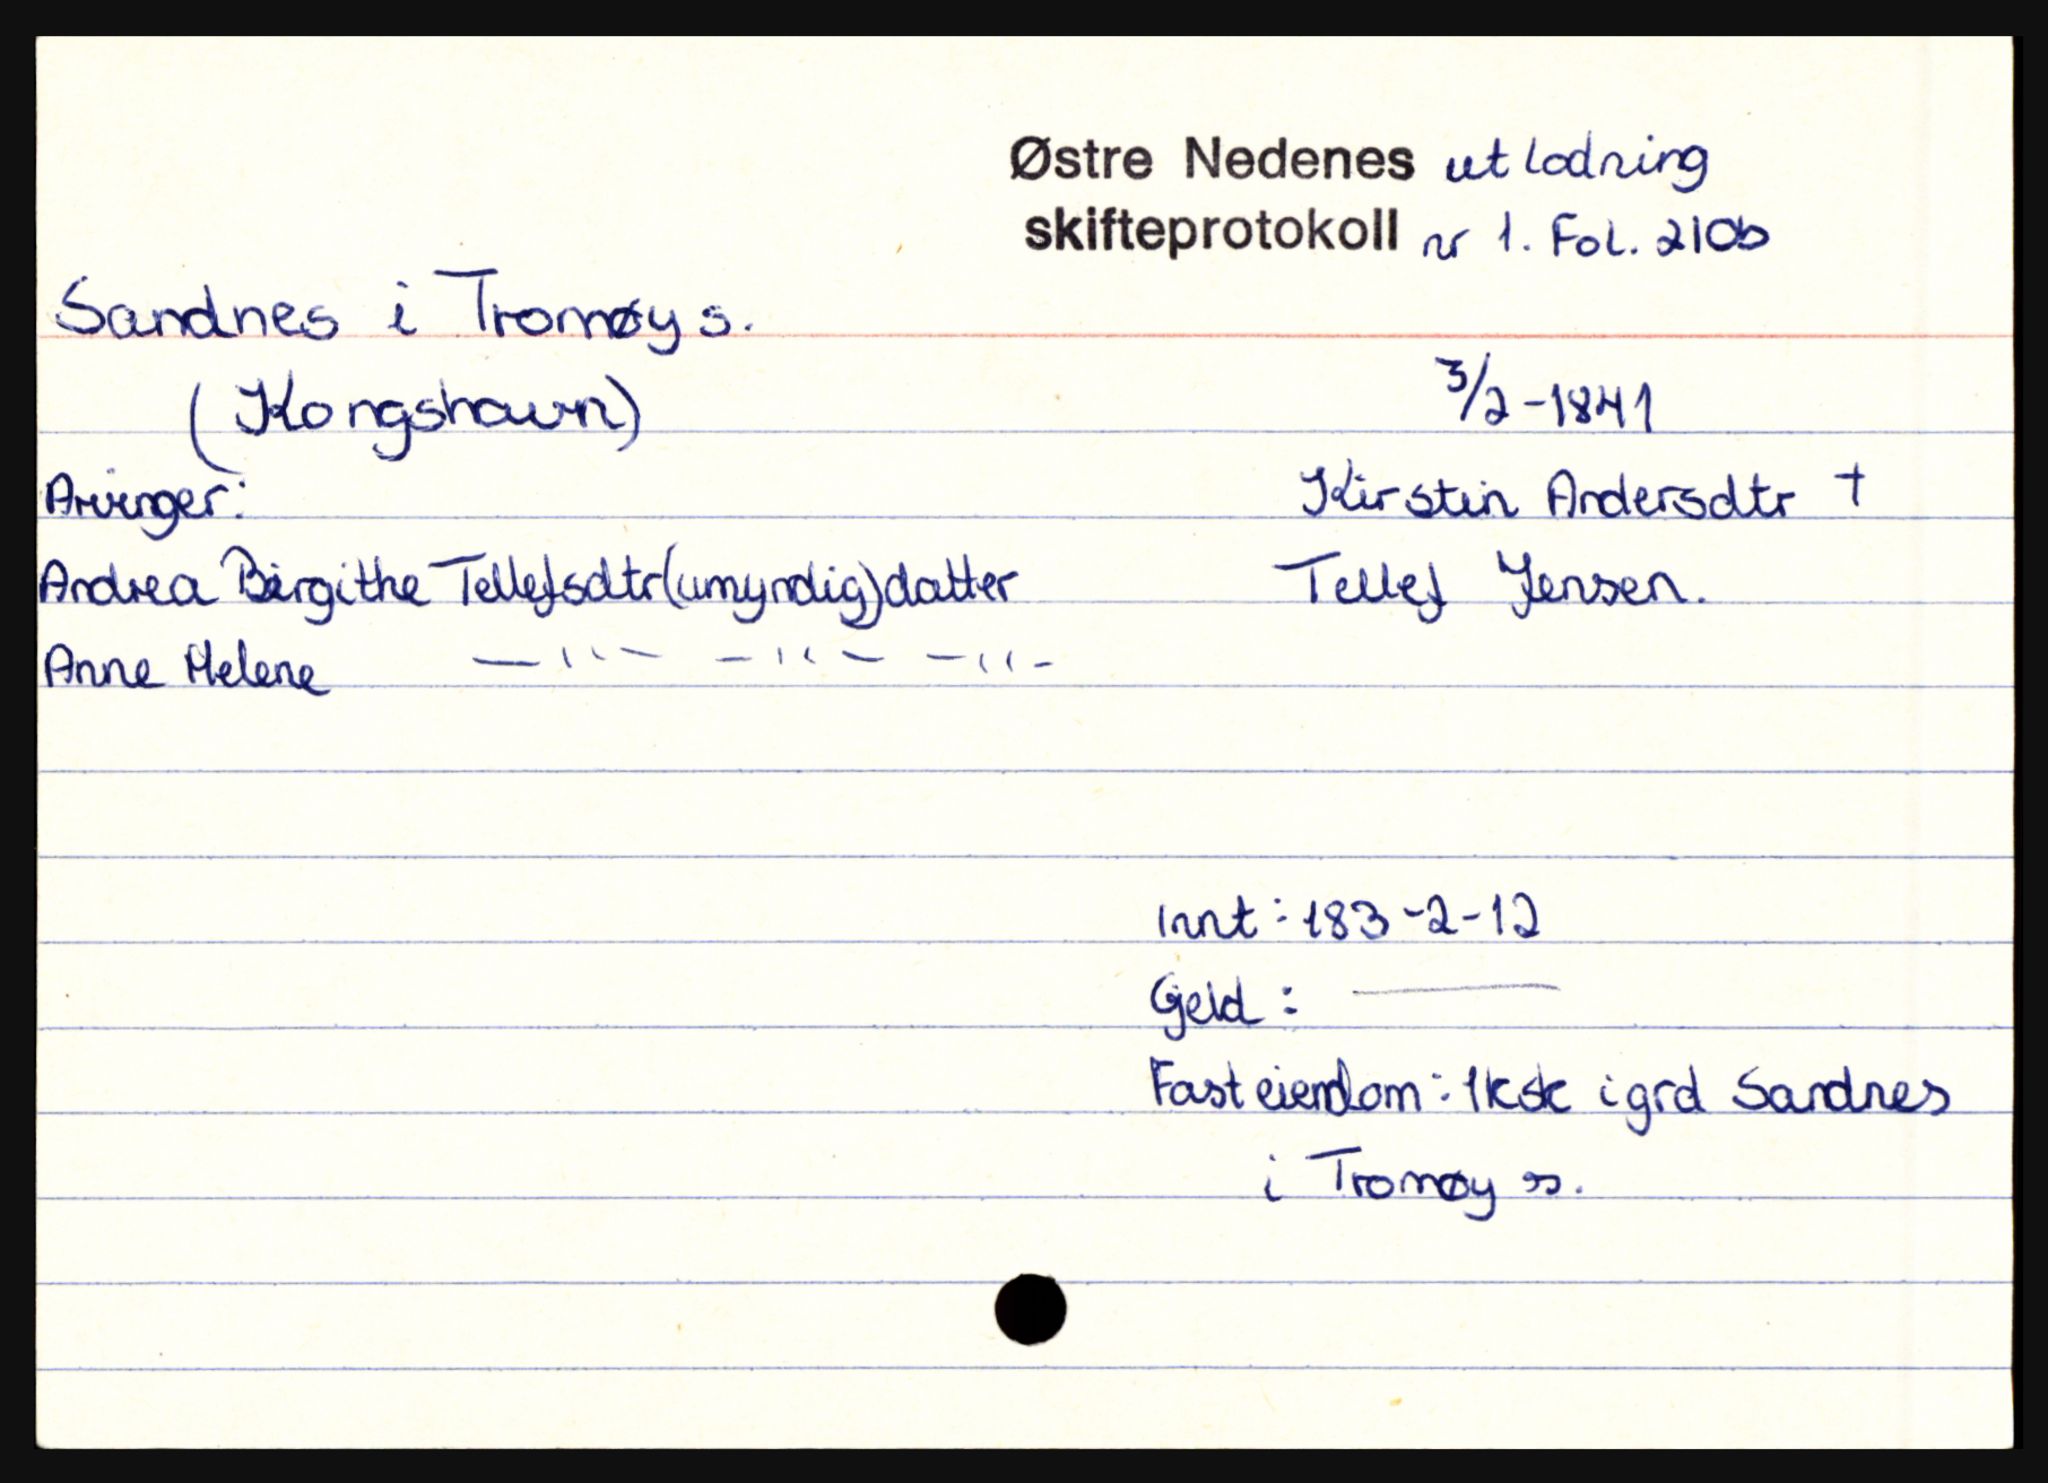 Østre Nedenes utlodning
skifteprotokoll nr 1. Fol. 210b
Sandnes i Tromøy s.
(Kongshavn)
3/2-1841
Arvinger:
Kirstin Andersdtr †
Andrea Birgithe Tellefsdtr (umyndig) datter
Tellef Jensen.
Anne Helene —"— —"— —"—
Innt: 183-2-12
Gjeld: —
Fast eiendom: 1ksk i grd Sandnes
i Tromøy s.